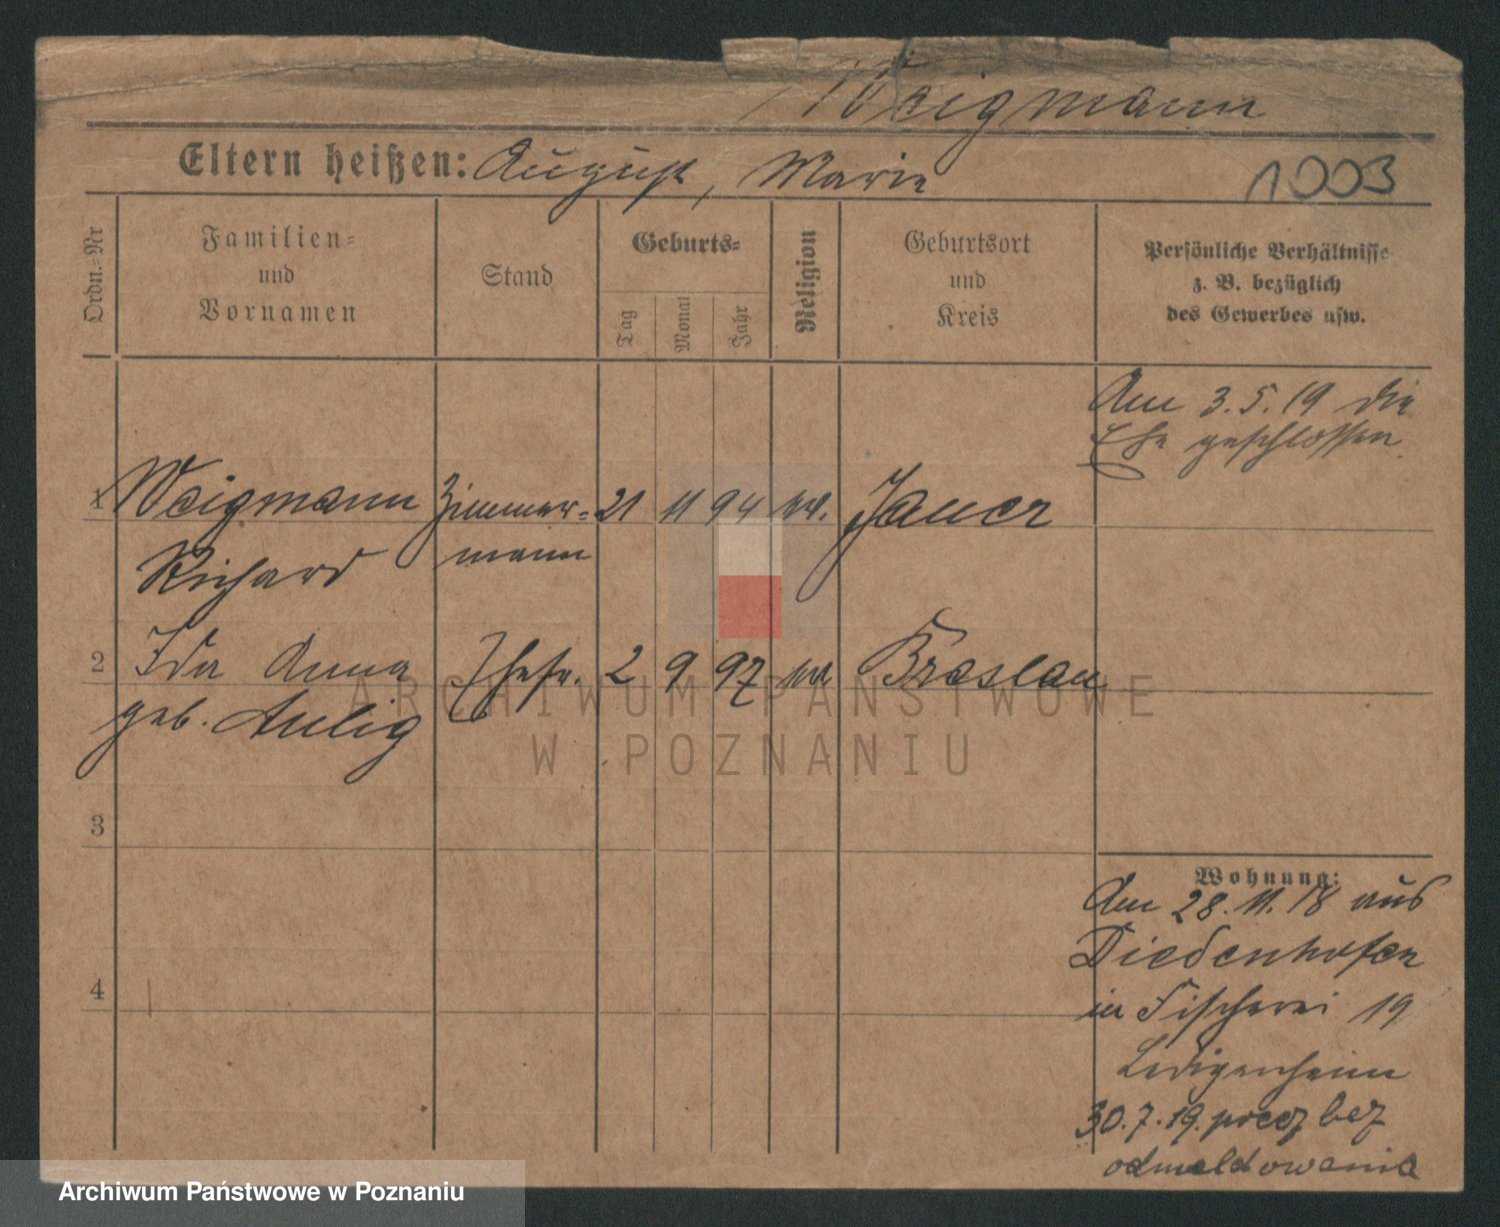 Weigmann
Eltern heißen: August, Marie
1003
Ordn.-Nr
Familien-
und
Vornamen
Stand
Geburts-
Tag
Monat
Jahr
Religion
Geburtsort
und
Kreis
Persönliche Verhältnisse
z. B. bezüglich
des Gewerbes usw.
Am 3.5.19 die
Ehe geschlossen.
1 Weigmann Zimmer- 21 11 94 ev. Jauer
Richard mann
2 Ida Anna Ehefr. 2 9 97 ev. Breslau
geb. Aulig
ARCHIWUM PAŃSTWOWE
W POZNANIU
3
Wohnung:
Am 28.11.18 aus
Diedenhofen
4
in Fischerei 19
Ledigenheim
30.7.19. precz bez
odmeldowania
Archiwum Państwowe w Poznaniu